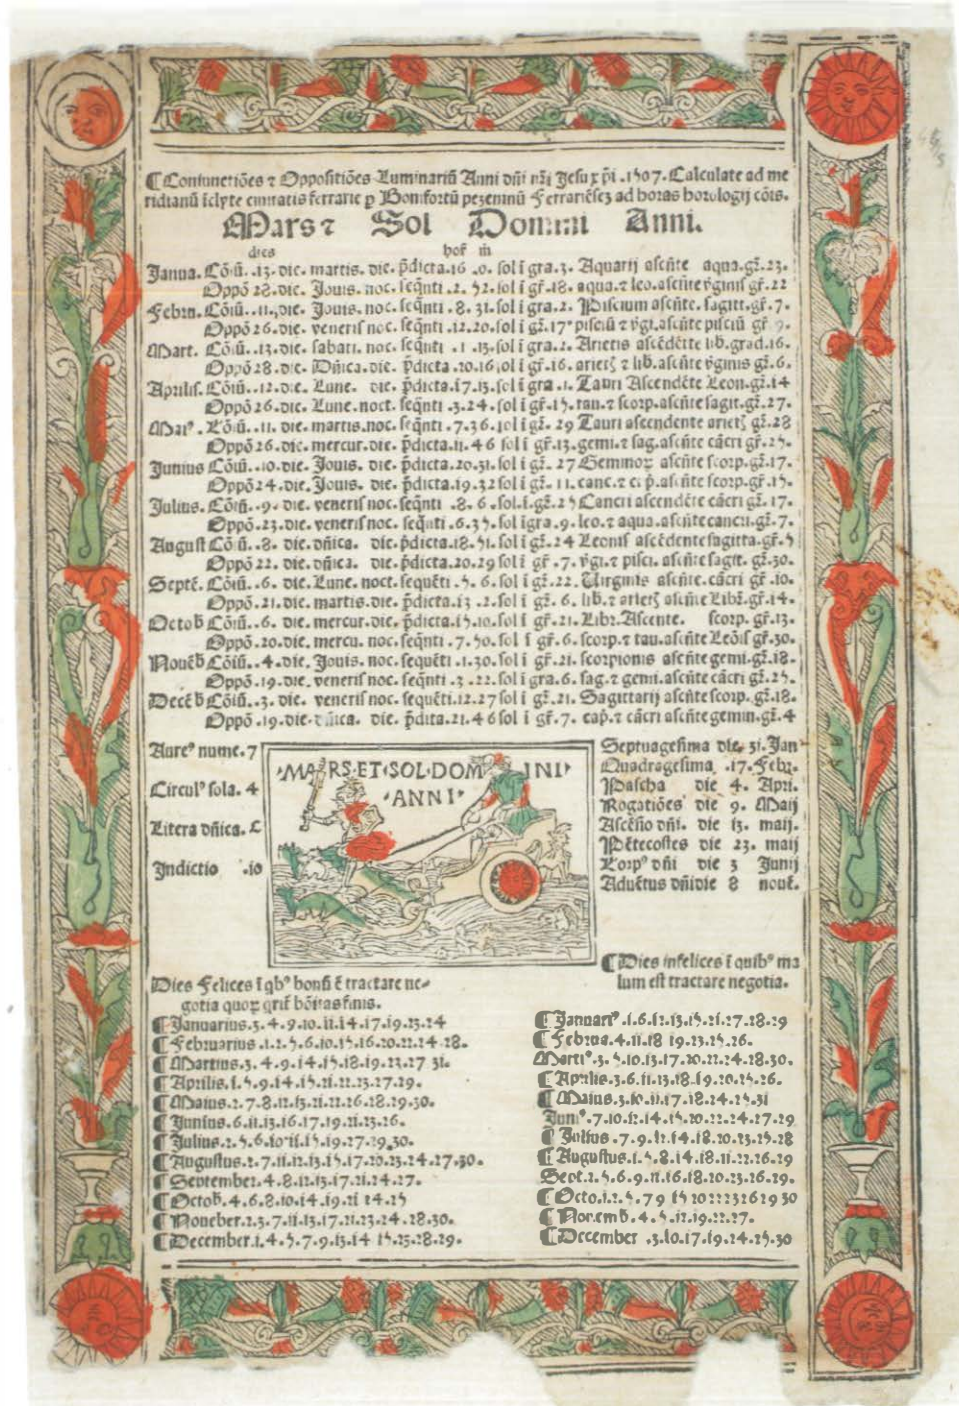 ¶Coniunctiões ⁊ Oppositiões Luminariũ Anni dñi nr̃i Jesu xp̃i .1507. Calculate ad me
ridianũ ĩclyte ciuitatis ferrarie ꝑ Bonifortũ pezeninũ Ferrariẽseʒ ad horas horologij cõis.
Mars ⁊ Sol Domini Anni.
dies hor̃ m̃
Janua. Cõiũ. .13. die. martis. die. p̃dicta. 16 .0. sol ĩ gra. 3. Aquarij ascñte aqua. gr̃. 23.
Oppõ 28. die. Jouis. noc. seq̃nti .2. 52. sol ĩ gr̃. 18. aqua. ⁊ leo. ascñte v̄ginis gr̃. 22
Febru. Cõiũ. .11. die. Jouis. noc. seq̃nti .8. 31. sol ĩ gra. 2. Piscium ascñte. sagitt. gr̃. 7.
Oppõ 26. die. veneris noc. seq̃nti .12.20. sol ĩ gr̃. 17 pisciũ ⁊ v̄gi. ascñte pisciũ gr̃ 9.
Mart. Cõiũ. .13. die. sabati. noc. seq̃nti .1 .15. sol ĩ gra. 2. Arietis ascẽdẽte lib. grad. 16.
Oppõ 28. die. Dñica. die. p̃dicta .20.16 sol ĩ gr̃. 16. arietʒ ⁊ lib. ascñte v̄ginis gr̃. 6.
Aprilis. Cõiũ. .12. die. Lune. die. p̃dicta. 17. 15. sol ĩ gra .1. Tauri Ascendẽte Leon. gr̃. 14
Oppõ 26. die. Lune. noct. seq̃nti .3. 24. sol ĩ gr̃. 15. tau. ⁊ scorp. ascñte sagit. gr̃. 27.
Mai⁹. Cõiũ. .11. die. martis. noc. seq̃nti .7. 36. sol ĩ gr̃. 29 Tauri ascendente arietʒ gr̃. 28
Oppõ 26. die. mercur. die. p̃dicta. 11. 46 sol ĩ gr̃. 13. gemi. ⁊ sag. ascñte cãcri gr̃. 25.
Junius Cõiũ. .10. die. Jouis. die. p̃dicta. 20. 31. sol ĩ gr̃. 27 Geminoꝝ ascñte scorp. gr̃. 17.
Oppõ 24. die. Jouis. die. p̃dicta. 19. 32 sol ĩ gr̃. 11. canc. ⁊ cap̃. ascñte scorp. gr̃. 15.
Julius. Cõiũ. .9. die. veneris noc. seq̃nti .8. 6. sol. ĩ. gr̃. 25 Cancri ascendẽte cãcri gr̃. 17.
Oppõ. 23. die. veneris noc. seq̃nti .6. 35. sol ĩ gra. 9. leo. ⁊ aqua. ascñte cancri. gr̃. 7.
August Cõiũ. .8. die. dñica. die. p̃dicta. 18. 51. sol ĩ gr̃. 24 Leonis ascẽdente sagitta. gr̃. 5
Oppõ 22. die. dñica. die. p̃dicta. 20. 29 sol ĩ gr̃ .7. v̄gi. ⁊ pisci. ascñte sagit. gr̃. 30.
Septẽ. Cõiũ. .6. die. Lune. noct. sequẽti .5. 6. sol ĩ gr̃. 22. Uirginis ascñte. cãcri gr̃. 10.
Oppõ. 21. die. martis. die. p̃dicta. 13 .2. sol ĩ gr̃. 6. lib. ⁊ arietʒ ascñte Libr̃. gr̃. 14.
Octob Cõiũ. .6. die. mercur. die. p̃dicta. 15. 10. sol ĩ gr̃. 21. Libr. Ascente. scorp. gr̃. 13.
Oppõ. 20. die. mercu. noc. seq̃nti .7. 50. sol ĩ gr̃. 6. scorp. ⁊ tau. ascñte Leõis gr̃. 30.
Nouẽb Cõiũ. .4. die. Jouis. noc. sequẽti .1. 30. sol ĩ gr̃. 21. scorpionis ascñte gemi. gr̃. 18.
Oppõ. 19. die. veneris noc. seq̃nti .3 .22. sol ĩ gra. 6. sag. ⁊ gemi. ascñte cãcri gr̃. 25.
Decẽb Cõiũ. .3. die. veneris noc. sequẽti. 12. 27 sol ĩ gr̃. 21. Sagittarij ascñte scorp. gr̃. 18.
Oppõ .19. die. dñica. die. p̃dita. 21. 46 sol ĩ gr̃. 7. cap̃. ⁊ cãcri ascñte gemin. gr̃. 4
Aure⁹ nume. 7
Circul⁹ sola. 4
Litera dñica. C
Indictio .10
MARS·ET·SOL·DOMINI
·ANNI·
Septuagesima die. 31. Jan
Quadragesima .17. Febr.
Pascha die 4. April.
Rogatiões die 9. Maij
Ascẽsio dñi. die 13. maij.
Pẽtecostes die 23. maij
Corp⁹ dñi die 3 Junij
Aduẽtus dñi die 8 nouẽ.
Dies Felices ĩ qb⁹ bonũ ẽ tractare ne⸗
gotia quoꝝ qrit̃ bõitas finis.
¶Januarius. 3. 4. 9. 10. 11. 14. 17. 19. 23. 24
¶Februarius .1. 2. 5. 6. 10. 15. 16. 20. 22. 24. 28.
¶Martius. 3. 4. 9. 14. 15. 18. 19. 22. 27 31.
¶Aprilis. 1. 5. 9. 14. 15. 21. 22. 23. 27. 29.
¶Maius. 2. 7. 8. 12. 13. 21. 22. 26. 28. 29. 30.
¶Junius. 6. 11. 13. 16. 17. 19. 21. 23. 26.
¶Julius. 2. 5. 6. 10. 11. 15. 19. 27. 29. 30.
¶Augustus. 2. 7. 11. 12. 13. 15. 17. 20. 23. 24. 27. 30.
¶September. 4. 8. 12. 13. 17. 21. 24. 27.
¶Octob. 4. 6. 8. 10. 14. 19. 21 24. 25
¶Noueber. 2. 3. 7. 11. 13. 17. 21. 23. 24. 28. 30.
¶December. 1. 4. 5. 7. 9. 13. 14 15. 25. 28. 29.
¶Dies infelices ĩ quib⁹ ma
lum est tractare negotia.
¶Januari⁹ .1. 6. 12. 13. 15. 21. 27. 28. 29
¶Februa. 4. 11. 18 19. 23. 25. 26.
Marti⁹. 3. 5. 10. 13. 17. 20. 22. 24. 28. 30.
¶Aprilis. 3. 6. 11. 13. 18. 19. 20. 25. 26.
¶Maius. 3. 10. 11. 17. 18. 24. 25. 31
Juni⁹. 7. 10. 12. 14. 15. 20. 22. 24. 27. 29
¶Julius .7. 9. 12. 14. 18. 20. 23. 25. 28
¶Augustus. 1. 5. 8. 14. 18. 11. 22. 26. 29
Sept. 2. 5. 6. 9. 11. 16. 18. 20. 23. 26. 29.
¶Octo. 1. 2. 5. 7 9 15 20 22 23 26 29 30
¶Nouemb. 4. 5. 12. 19. 22. 27.
¶December .3. 10. 17. 19. 24. 25. 30